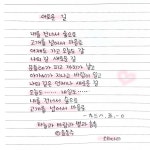 새로운 길
내를 건너서 숲으로
고개를 넘어서 마을로
어제도 가고 오늘도 갈
나의 길 새로운 길
민들레가 피고 까치가 날고
아가씨가 지나고 바람이 일고
나의 길은 언제나 새로운 길
오늘도...... 내일도......
내를 건너서 숲으로
고개를 넘어서 마을로
하늘과 바람과 별과 시
윤동주